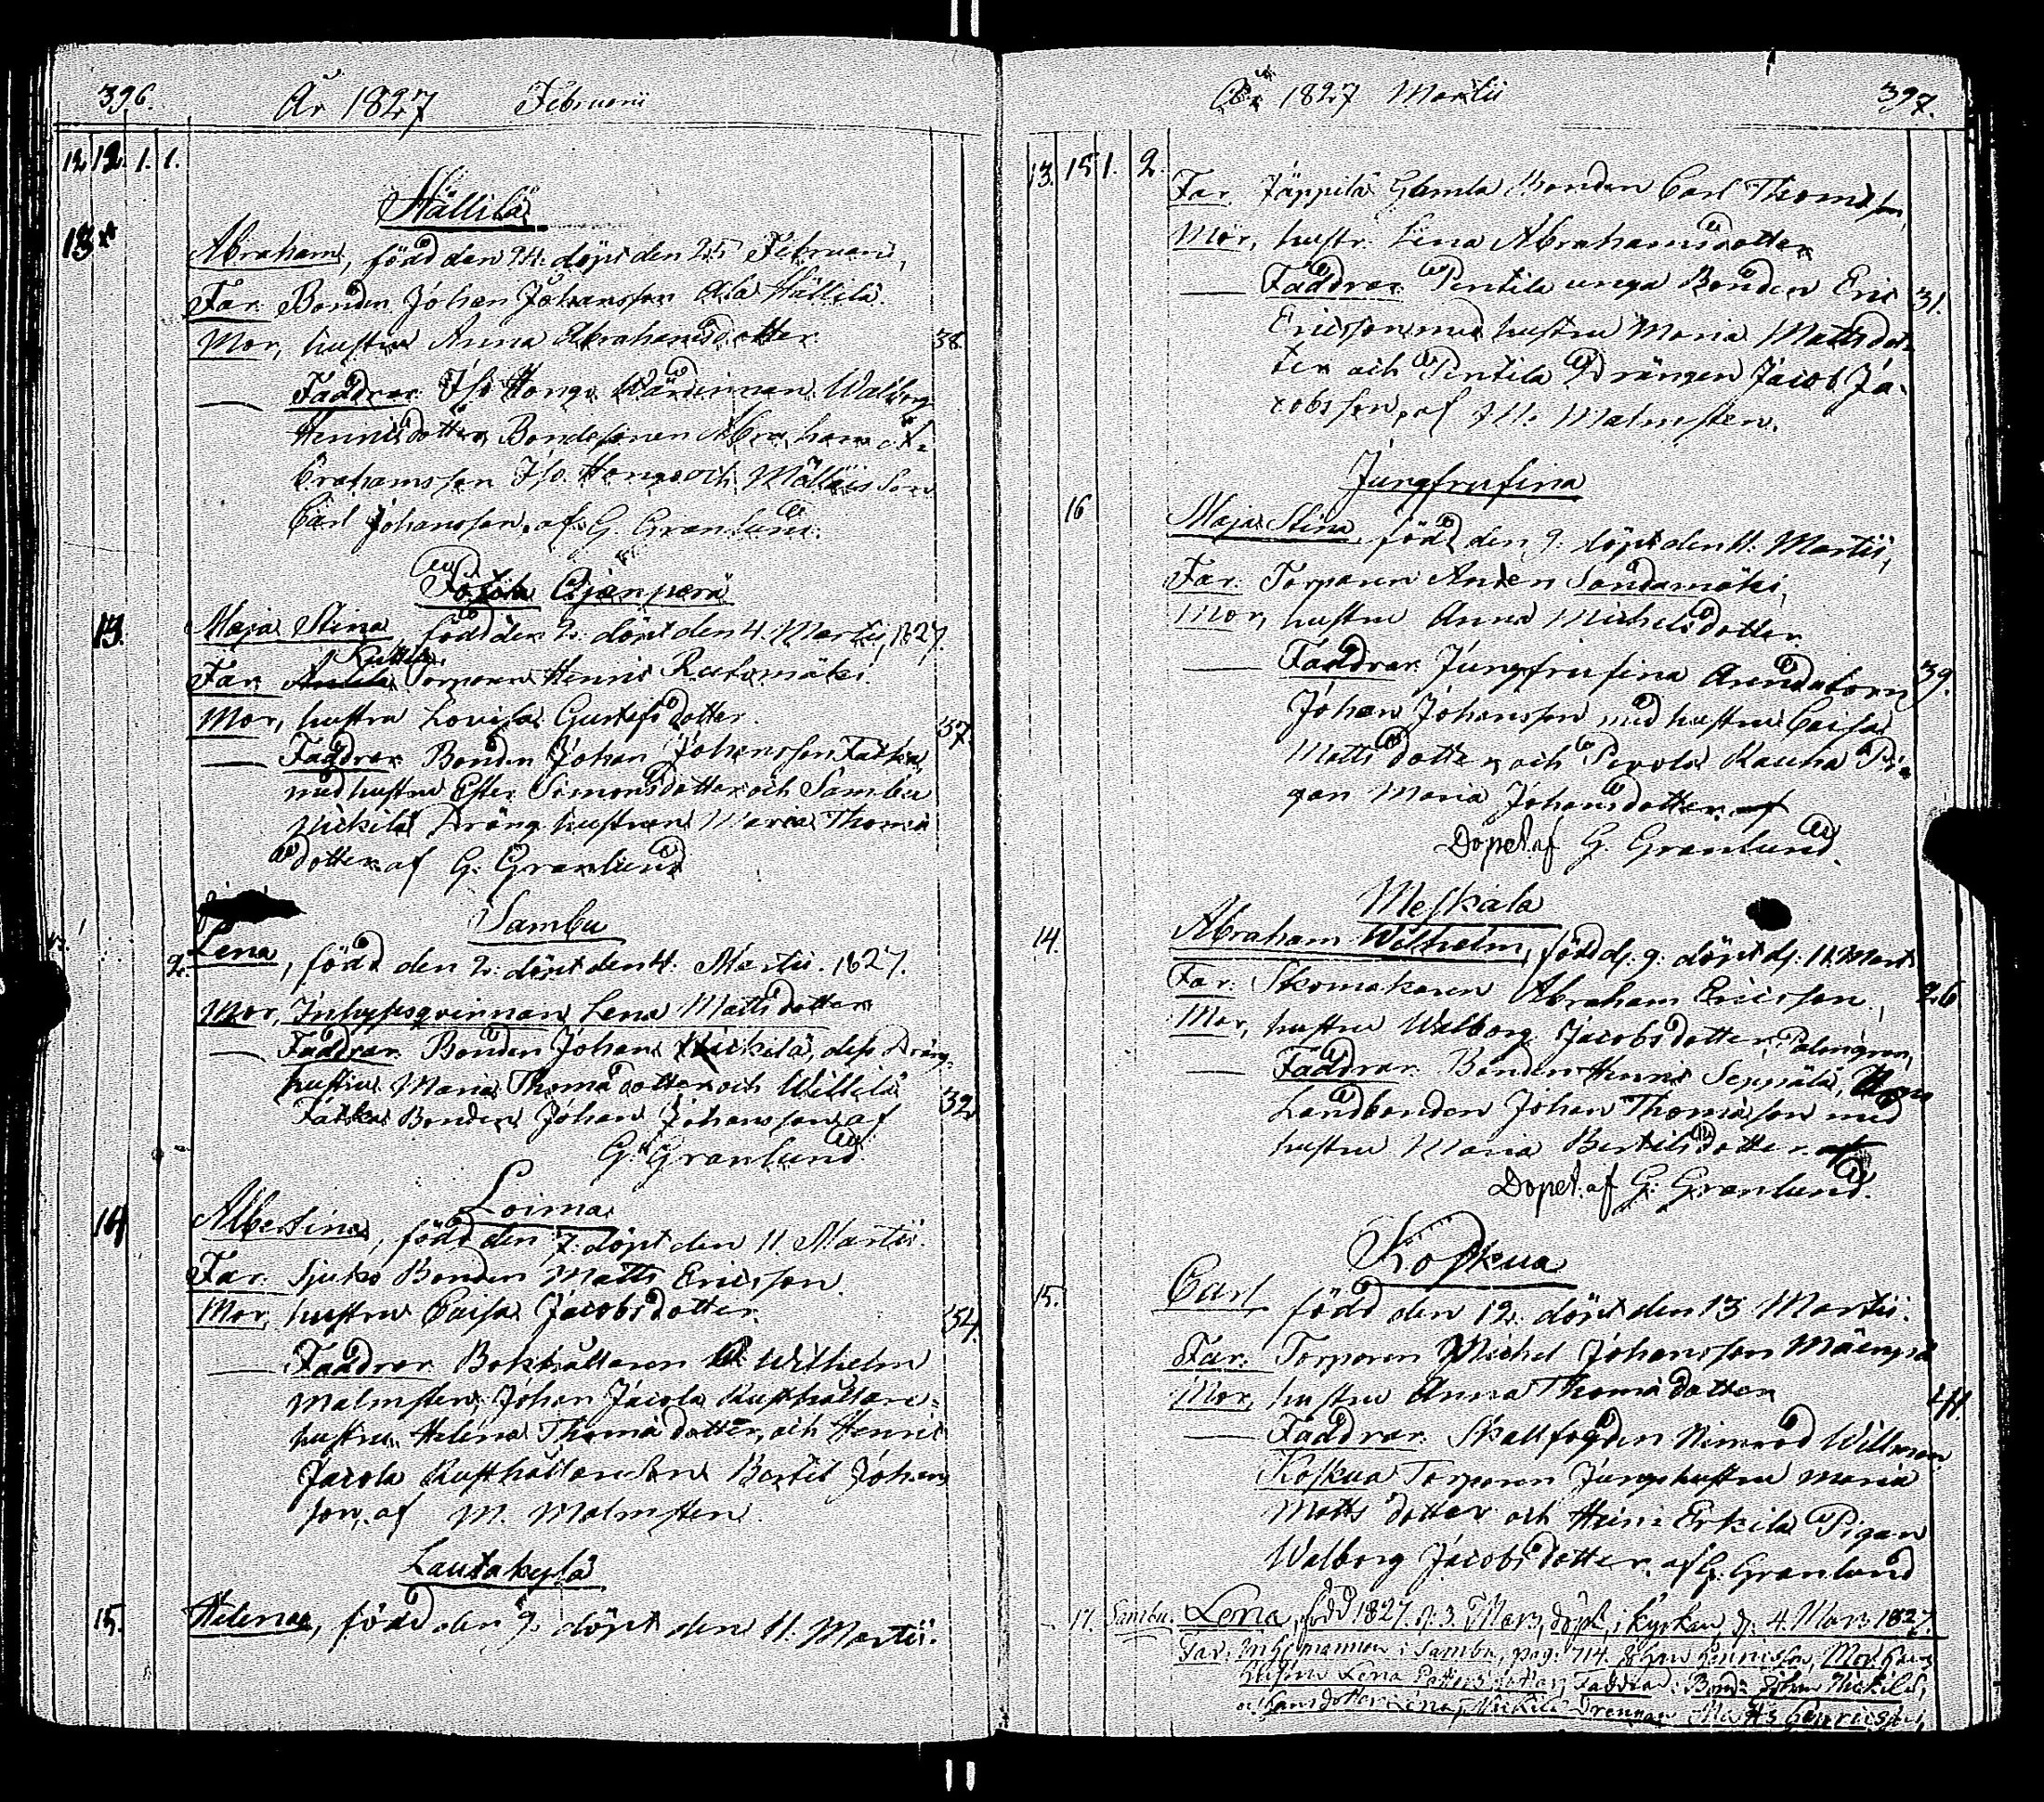 396. År 1827 Februarii
12 12. 1. 1.
Hällilä
13 Abraham, född den 24. döpt den 25 Februarii,
Far. Bonden Johan Johansson Ala Hällilä.
Mor, hustru Anna Abrahamsdotter. 38
Faddrar. Iso Hongo Wärdinnan Walborg
Henricsdotter, Bondesonen Abraham A-
brahamsson Iso Hongo och
Carl Johansson, af G. Granlund.
Ajänperä
13. Maja Stina, född den 2. döpt den 4. Martii, 1827.
Far. Torparen Henric
Mor, hustru Lovisa Gustafsdotter. 37.
Faddrar. Bonden Johan Johansson
med hustru Ester Simonsdotter och Sambu
Mickilä Dräng hustrun Maria Thomæ
dotter. af G. Granlund
Sambu
2. Lena, född den 2. döpt den 4. Martii. 1827.
Mor, Inhysesqvinnan Lena Mattsdotter
Faddrar. Bonden Johan Mickilä, dess Dräng-
hustru Maria Thomædotter och Willilä
Bonden Johan Johansson af 32
G. Granlund
Loima
14 Albertina, född den 7. döpt den 11. Martii.
Far. Sjuko Bonden Matts Ericsson.
Mor, hustru Caisa Jacobsdotter. 34.
Faddrar. Bokhållaren Wilhelm
Malmsten, Johan Jacola Rusthållare-
hustru Helena Thomædotter, och Henric
Jacola Rusthållareson Bertil Johans
son, af M. Malmsten.
Lautakylä
15. Helena, född den 9. döpt den 11. Martii.
År 1827 Martii 397.
13. 15 1. 2.
Far. Jäppilä Gamla Bonden Carl Thomasson,
Mor, hustr. Lena Abrahamsdotter
Faddrar. Pentilä unga Bonden Eric 31.
Ericsson med hustru Maria Mattsdot-
ter och Pentilä Drängen Jacob Ja-
cobsson, af M. Malmsten.
Jungfrufina
16 Maja Stina född den 9. döpt den 11. Martii,
Far. Torparen Anders Sondamäki,
Mor, hustru Anna Michelsdotter.
Faddrar. Jungfrufina Arendatorn 39.
Johan Johansson med hustru Caisa
Mattsdotter, och Pevola Rauha Pi-
gan Maria Johansdotter. af
Dopet. af G. Granlund.
Meskala
14. Abraham Wilhelm, född d. 9. döpt d. 11. Mart.
Far. Skomakaren Abraham Ericsson, 26
Mor, hustru Walborg Jacobsdotter Palmgren,
Faddrar. Bonden Henric Seppälä,
Landbonden Johan Thomasson med
hustru Maria Bertilsdotter. af
Dopet. af G. Granlund.
Koskua
15. Carl född den 12. döpt den 13 Martii.
Far. Torparen Michel Johansson Mäenpä
Mor, hustru Anna Thomædotter 41.
Faddrar. Skallfogden Nimrod Willman
Koskua Torparen Jungs hustru Maria
Mattsdotter och Heini Erkilä Pigan
Walborg Jacobsdotter. af G. Granlund
17. Sambu. Lena, född 1827. d. 3. Mars, döpt i kyrkan d. 4. Mars 1827.
Far. Inh. mannen i Sambu, pag. 714. Mor. hans
hustru Lena Faddrar. Bond. Johan Mickilä,
dotter Lena, Mickilä Drengen Matts Henricsson,